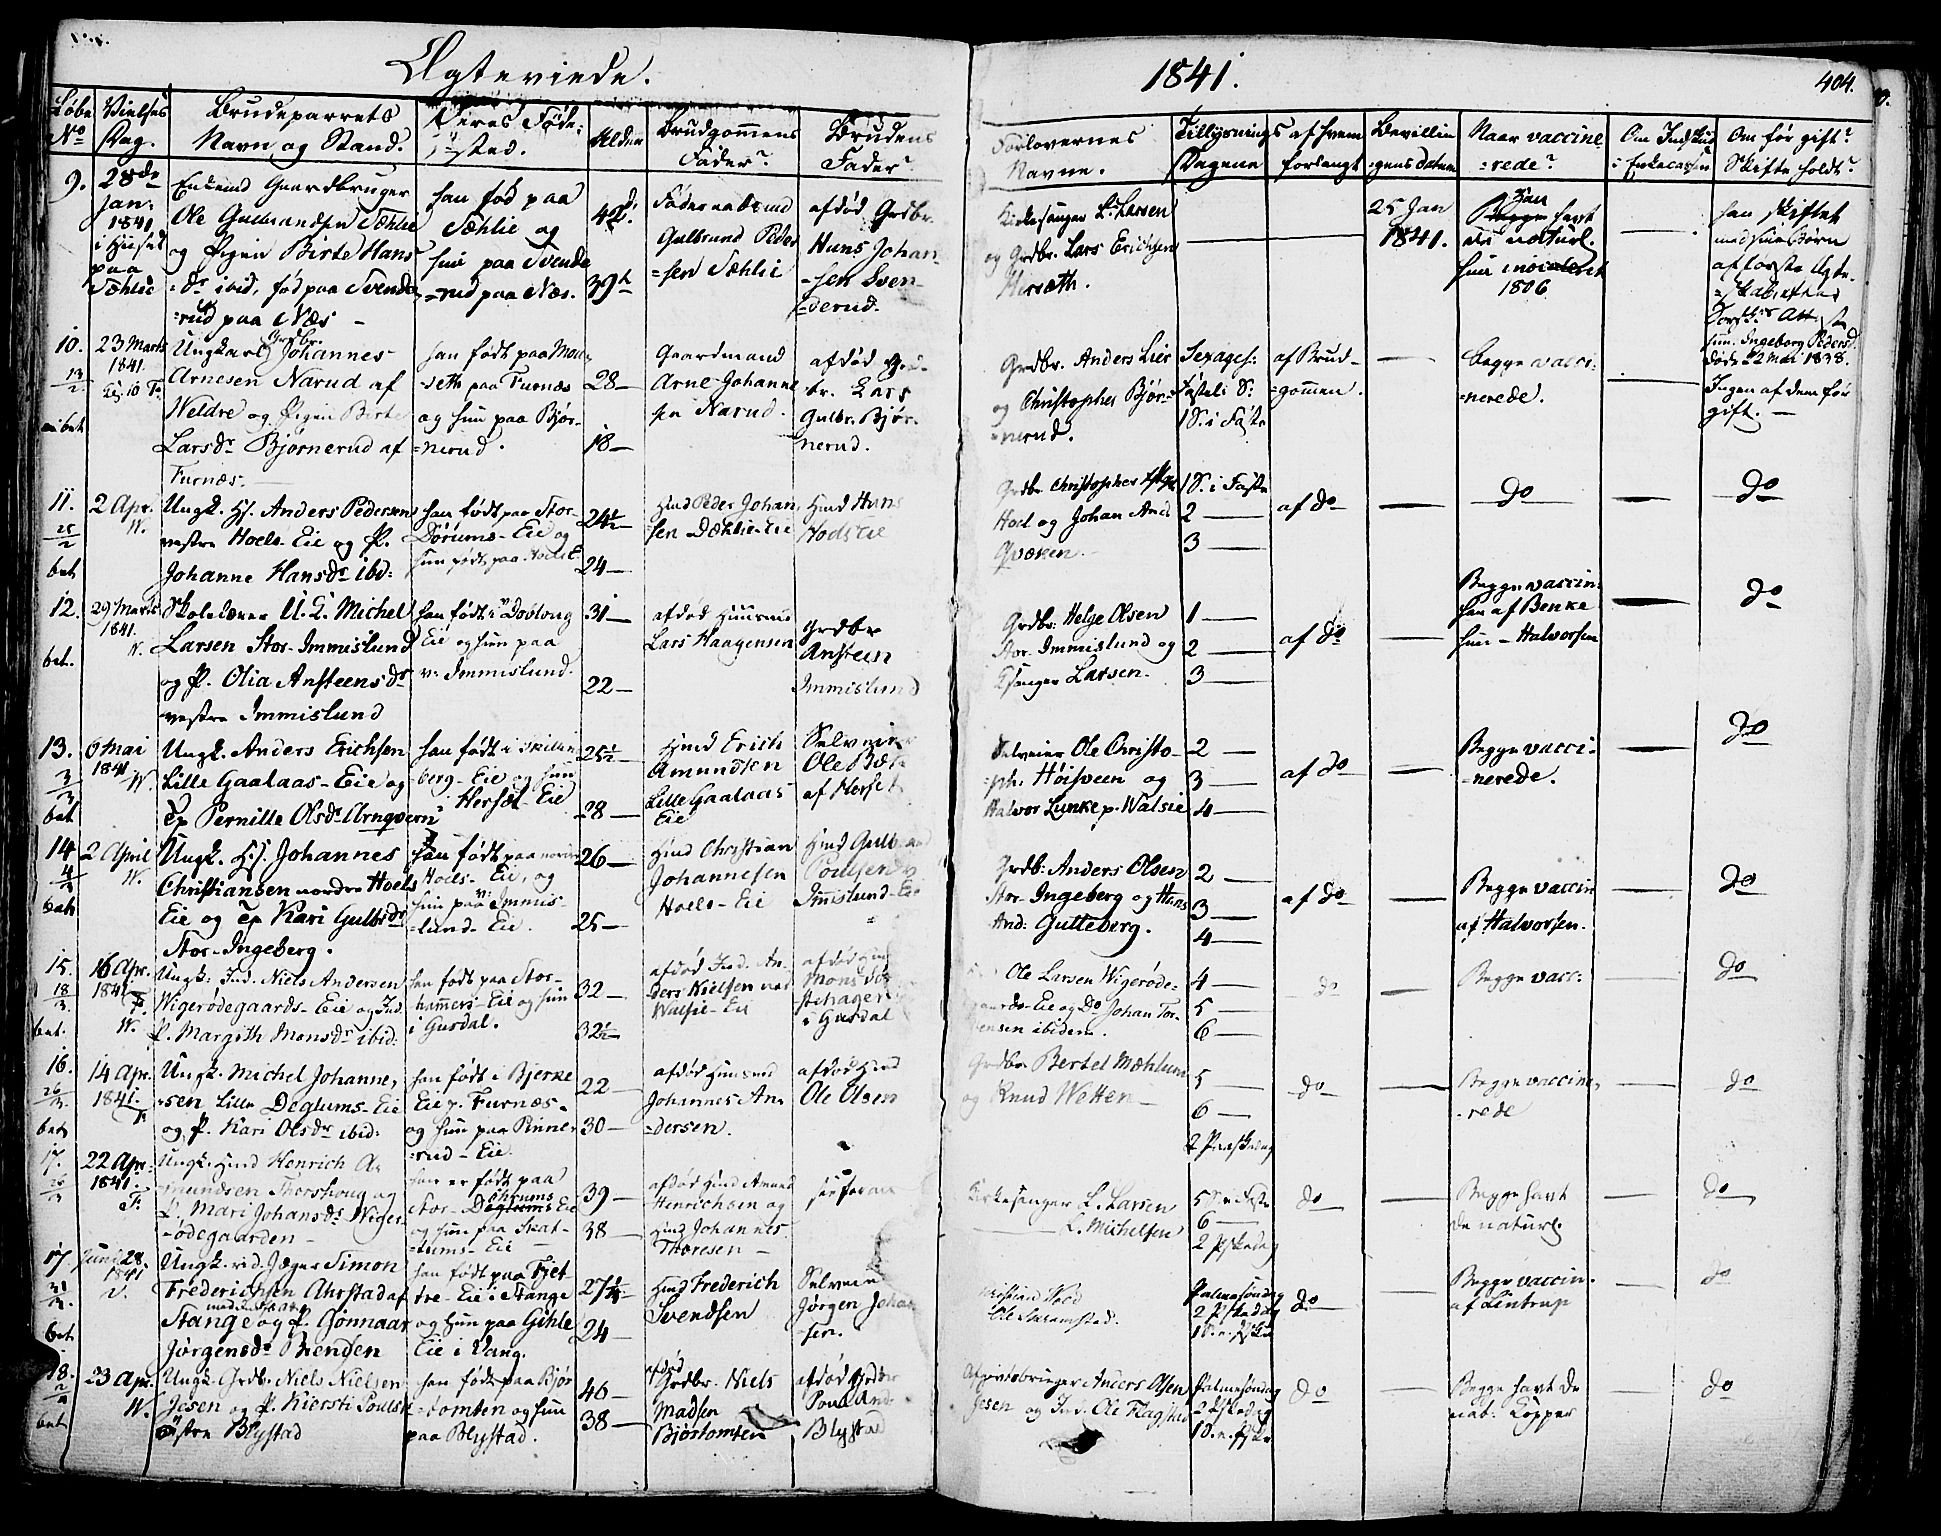 Ægteviede.
1841.
404.
Løbe No
Vielses Dag.
Brudeparrets Navn og Stand.
Deres Føde-sted.
Alder
Brudgommens Fader?
Brudens Fader?
Forlovernes Navne.
Tillysnings Dagene
af hvem forlangt
Bevillingens Datum
Naar vaccinerede?
Om Indskud i Enkecassen
Om før gift? Skifte holdt?
9.
28de Jan: 1841 i Huset paa Sæhlie
Enkemd Gaardbruger
Ole Gulbrandsen Sæhlie
og Pigen Birte Hans
dr ibid, fød paa Svende
rud paa Næs
han fød paa
Sæhlie og
hun paa Svende
rud paa Næs.
39
Gulbrand Peder
sen Sæhlie
afdød Grdbr.
Hans Johan
sen Sven
derud.
Kirkesanger L. Larsen
og Grdbr. Lars Erichsen
Hersæth.
25 Jan
1841.
Han havt
de naturl.
hun inoculeret
1806
han skiftet
med sine Børn
af første Ægte
skab efter
hun. Ingeborg Pedersd
døde 22 Mai 1838.
10.
13/2
bet
23 Marts
1841
Ungkarl Grdbr. Johannes
Arnesen Narud af
Weldre og Pigen Birte
Larsdr Bjørnerud af
Furnæs.
han født paa Mou
seth paa Furnæs
og hun paa Bjør
nerud.
28
18
Gaardmand
Arne Johanne
sen Narud.
afdød Grd
br. Lars
Gulbr. Bjør
nerud.
Grdbr. Anders Lier
og Christopher Bjør
nerud.
Sexages:
Fastel: S.
1 S. i Faste
af Brud
gommen.
Begge vacci
nerede.
Ingen af dem før
gift.
11.
25/2
bet
2 Apr.
W.
Ungk. Hs. Anders Pedersen
vestre Hoels Eie og P.
Johanne Hansdr ibid:
han født paa Stor
Dørums Eie og
hun født paa Hoels E
24½
24
Hmd Peder Johan
sen Dæhlie Eie
Hmd Hans
Hoels Eie
Grdbr Christopher
Hoel og Johan And
Qvæken.
1 S. i Faste
2
3
af do
do
do
12.
bet.
29 Marts
1841.
W.
Skolelærer U. K. Michel
Larsen Stor-Immislund
og P. Olia Ansteensdr
vestre Immislund
han født i Dobloug
Eie og hun paa
v. Immislund.
31
22
afdød Huusmd
Lars Haagensen
Grdbr
Ansteen
Immislund
Grdbr. Helge Olsen
Stor Immislund og
Ksanger Larsen.
1
2
3
af do
Begge vaccin:
han af Benke
hun Halvorsen
do
13.
3/3
bet
6 Mai
1841
W.
Ungk. Anders Erichsen
Lille Gaalaas Eie og
Tp Pernille Olsdr Arnqvern
han født i Skillin
berg Eie og hun
i Hersæt Eie
25½
28
Hmd Erich
Amundsen
Lille Gaalaas
Eie
Selveier
Ole
af Herset
Selveier Ole Christo
ph. Høisveen og
Halvor Lunke p. Walsie
2
3
4
af do
Begge vacci
nerede.
do
14
4/3
bet
2 April
W.
Ungk. Hs. Johannes
Christiansen nordre Hoels
Eie og Tp Kari Gulbrdr
Stor-Ingeberg.
han født paa nordre
Hoels Eie, og
hun paa v. Immis
lund Eie.
26
25
Hmd Christian
Johannesen
Hoels Eie
Hmd Gulbrand
Poulsen
Imislund Eie
Grdb: Anders Olsen
Stor Ingeberg og Hans
And: Gutteberg.
2
3
4
af do
Begge vaccin
af Halvorsen.
do
15.
18/3
bet.
16 Apr.
1841
F.
W.
Ungk: Ind. Niels Andersen
Wigerødegaards Eie og Ind.
P. Margith Monsdr ibid:
han født paa Stor
hammers Eie og hun
i Gusdal.
32
32½
afdød Ind. An
ders Nielsen
Walsie Eie
afdød
Mons
stehagen
i Gusdal
Ole Larsen Wigerøde
gaards Eie og Do Johan Tor
sen ibidem.
4
5
6
do
Begge vacc:
do
16.
26/3
bet
14 Apr.
1841.
F
Ungk. Michel Johanne
sen Lille Deglums Eie
og P. Kari Olsdr ibid:
han født i Bjerke
Eie p. Furnæs
og hun paa Pinne
rud Eie.
22
30
afdød Huusmd
Johannes An
dersen.
afdød Hmd
Ole Olsen
Grdbr Bertel Mæhlum
og Knud Wetten
5
6
2 Paaskedag
do
Begge vaccine
rede
do
17.
22 Apr.
1841
F.
Ungk. Hmd Henrich A
mundsen Thorshoug og
P. Mari Johansdr Wiger
ødegaarden
han er født paa
Stor Døhrums Eie
og hun paa Skat
tums Eie
39
38
afdød Hmd Amund
Henrichsen og
Hmd Johannes
Thoresen
Kirkesanger L. Larsen
L. Michelsen
5 S. i Faste
6
2 Pskedag
do
Begge havt
de naturl.
do
17.
31/3.
bet
Juni 28.
1841
Ungk. rid. Jæger Simon
Frederichsen Ahrstad af
Stange og P. Gonnaar
Jørgensdr Brenden
han født paa Fjet
tre Eie i Stange
og hun paa Gihle
Eie i Vang.
27¼
24
Hmd Frederich
Svendsen
Selveier
Jørgen Johan
sen.
Palmesøndag
2 Pskedag
1 S. e. Pske
do
Begge vaccin.
af Lintrup
do
18.
bet
23 Apr.
W.
Ungk. Grdbr. Niels Nielsen
Jesen og P. Kiersti Poulsd
østre Blystad
han født paa Bjør
tomten og hun
paa Blystad.
46
38
afdød
Grdbr. Niels
Madsen
Bjørtomten
afdød Grdbr
Poul And
Blystad
Anders Olsen
Jesen og Ind. Ole Flagstad
Palmesøndag
2 Pskedag
1 S. e. Pske
do
Begge havt de
nat: Kopper
do